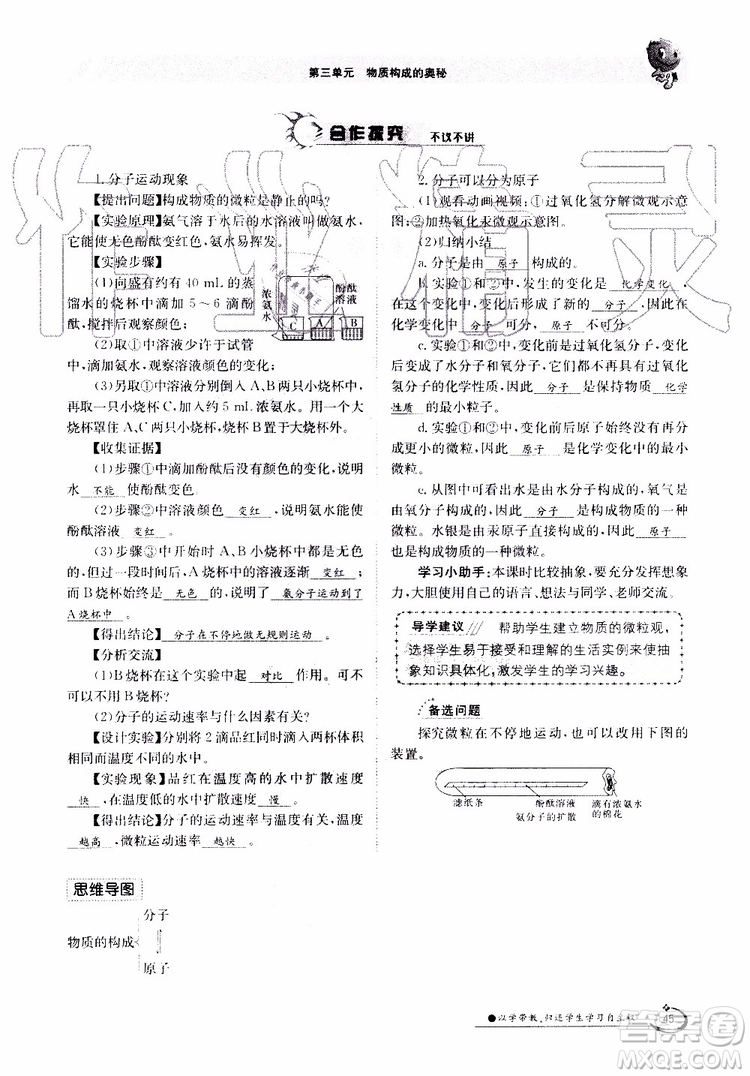 第三单元 物质构成的奥秘
合作探究 不议不讲
1.分子运动现象
【提出问题】构成物质的微粒是静止的吗?
【实验原理】氨气溶于水后的水溶液叫做氨水,
它能使无色酚酞变红色,氨水易挥发。
【实验步骤】
(1)向盛有约有 40 mL 的蒸
馏水的烧杯中加入 5~6 滴酚
酞,搅拌后观察颜色;
浓氨水
酚酞溶液
C A B
(2)取①中溶液少许于试管
中,滴加氨水,观察溶液颜色的变化;
(3)另取①中溶液分别倒入 A、B 两个小烧杯
中,再取一个小烧杯加约 5 mL 浓氨水。用一个大
烧杯罩住 A、C 两个小烧杯,烧杯 B 置于大烧杯外。
【收集证据】
(1)步骤①中滴加酚酞后没有颜色的变化,说明
水 不能 使酚酞变色。
(2)步骤②中溶液颜色 变红 ,说明氨水能使
酚酞溶液 变红 。
(3)步骤③中开始时 A、B 小烧杯中都是无色
的,但过一段时间后 A 烧杯中的溶液逐渐 变红 ;
而 B 烧杯始终是 无色 ,说明了 氨分子运动到了
A 烧杯中 。
【得出结论】 分子在不停地做无规则运动 。
【分析交流】
(1)B 烧杯在这个实验中起 对比 作用。可不可
以不用 B 烧杯?
(2)分子的运动速率与什么因素有关?
【设计实验】分别将 2 滴品红同时滴入两杯体积相同、
温度不同的水中。
【实验现象】品红在温度高的水中扩散速率
快 ,在温度低的水中扩散速率 慢 。
【得出结论】分子的运动速率与温度有关,温度
越高 ,微粒运动速率 越快 。
2.分子可以分为原子
(1)观看动画视频:①过氧化氢分解微观示意
图;②加热氧化汞微观示意图。
(2)归纳小结
a.分子是由 原子 构成的。
b.实验①和②中,发生的变化是 化学变化 ,
在这个变化中,变化后形成了新的 分子 ,分子在
化学变化中 可分 。
c.实验①和②中,变化前的过氧化氢分子变
成了水分子和氧分子,它们都不再具有过氧化
氢分子的化学性质, 分子 是保持物质 化学
性质 的最小粒子。
d.实验①和②中,变化前后的原子没有再分
成更小的微粒,因此 原子 是化学变化中最小的
微粒。
e.从图中可看出水是由水分子构成的,氧气是
由氧分子构成的,因此 分子 是构成物质的一种
微粒。水银是由汞原子直接构成的,因此 原子
也是构成物质的一种微粒。
学习小助手:本课时比较抽象,要充分发挥想象
力,大胆使用自己的语言、想法与同学、老师交流。
导学建议 帮助学生建立物质的微粒观,
选择学生易于接受和理解的生活实例来使抽
象知识具体化,激发学生的学习兴趣。
备选问题
探究微粒在不停地运动,可以改用下图的
装置。
滤纸条 酚酞溶液 滴有浓氨水的棉花
氨分子的扩散
思维导图
物质的构成
分子
原子
以学带教,归还学生学习自主权
45
作业精灵
答案圈
MXQE.COM